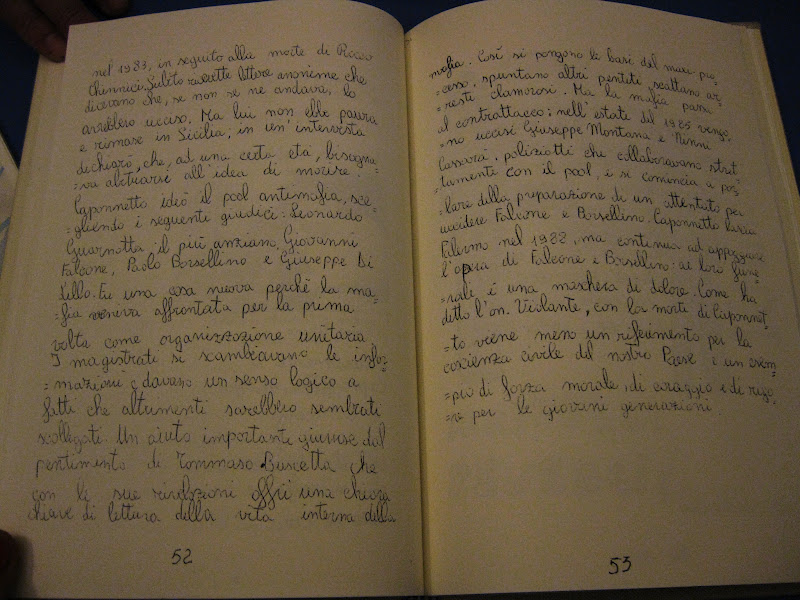 nel 1983, in seguito alla morte di Rocco
Chinnici. Subito ricevette lettere anonime che
dicevano che, se non se ne andava, lo
avrebbero ucciso. Ma lui non ebbe paura
e rimase in Sicilia; in un' intervista
dichiarò, che, ad una certa età, bisogna=
=va abituarsi all'idea di morire.
Caponnetto ideò il pool antimafia, sce=
=gliendo i seguenti giudici: Leonardo
Guarnotta, il più anziano, Giovanni
Falcone, Paolo Borsellino e Giuseppe Di
Lillo. Fu una cosa nuova perchè la ma=
=fia veniva affrontata per la prima
volta come organizzazione unitaria
I magistrati si scambiavano le infor=
=mazioni e davano un senso logico a
fatti che altrimenti sarebbero sembrati
scollegati. Un aiuto importante giunse dal
pentimento di Tommaso Buscetta che
con le sue rivelazioni offrì una chiara
chiave di lettura della vita interna della
52
mafia. Così si pongono le basi del maxi pro=
=cesso, spuntano altri pentiti, scattano ar=
=resti clamorosi. Ma la mafia passa
al contrattacco; nell'estate del 1985 vengo=
=no uccisi Giuseppe Montana e Ninni
Cassarà, poliziotti che collaboravano stret=
=tamente con il pool, e si comincia a par=
=lare della preparazione di un attentato per
uccidere Falcone e Borsellino. Caponnetto lascia
Palermo nel 1988, ma continua ad appoggiare
l'opera di Falcone e Borsellino: ai loro fune=
=rali è una maschera di dolore. Come ha
detto l'on. Violante, con la morte di Caponnet=
=to viene meno un riferimento per la
coscienza civile del nostro Paese e un esem=
=pio di forza morale, di coraggio e di rigo=
=re per le giovani generazioni.
53